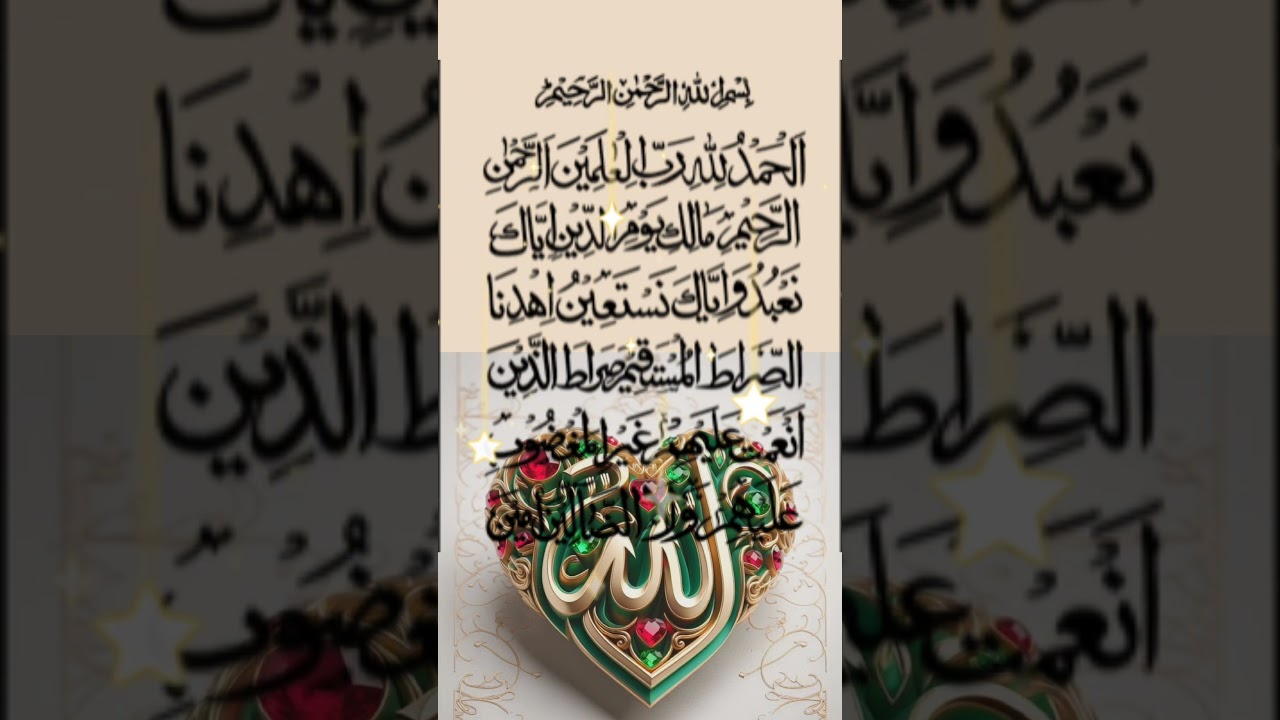 بِسْمِ اللهِ الرَّحْمٰنِ الرَّحِيْمِ
اَلْحَمْدُ لِلّٰهِ رَبِّ الْعٰلَمِيْنَ الرَّحْمٰنِ
الرَّحِيْمِ مَالِكِ يَوْمِ الدِّيْنِ اِيَّاكَ
نَعْبُدُ وَاِيَّاكَ نَسْتَعِيْنُ اِهْدِنَا
الصِّرَاطَ الْمُسْتَقِيْمَ صِرَاطَ الَّذِيْنَ
اَنْعَمْتَ عَلَيْهِمْ غَيْرِ الْمَغْضُوْبِ
عَلَيْهِمْ وَلَا الضَّآلِّيْنَ اٰمِيْنَ
الله